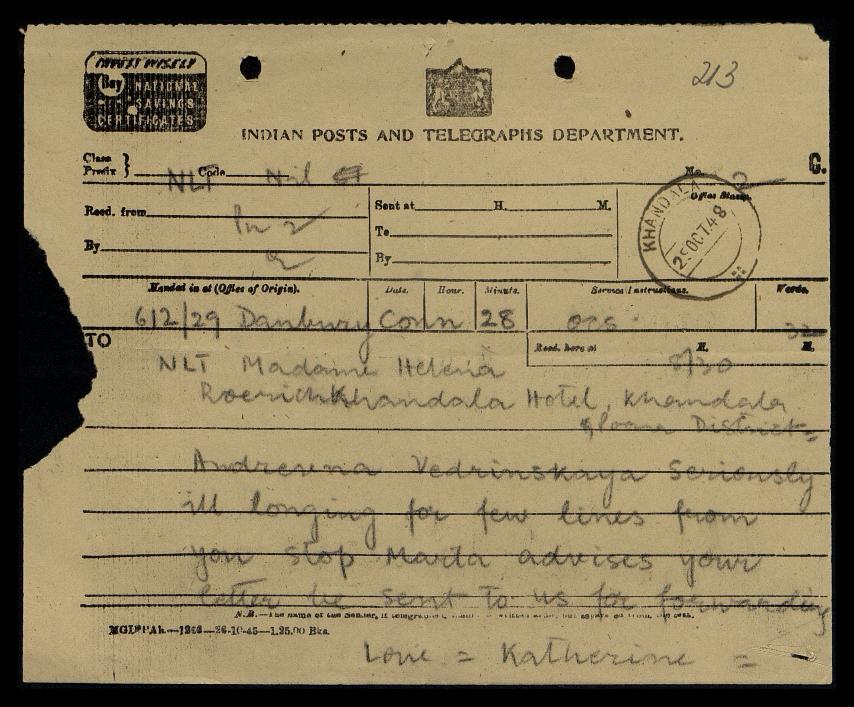 213
INVEST WISELY
Buy NATIONAL
SAVINGS
CERTIFICATES
INDIAN POSTS AND TELEGRAPHS DEPARTMENT.
C.
Class
Prefix } NLT Code Nil No. 2
Office Stamp.
KHANDALA
25 OCT 48
Recd. from Pn 2 Sent at H. M.
To
By By
Handed in at (Office of Origin). Date. Hour. Minute. Service Instructions. Words.
612/29 Danbury Conn 28 ors 32
TO Recd. here at H. M.
8/30
NLT Madame Helena
Roerich Khandala Hotel, Khandala
District =
Andrevna Vedrinskaya Seriously
ill longing for few lines from
you stop Marta advises your
letter be sent to us for forwarding
N.B.—The name of the Sender, if telegraphed,
MGIPAh.—1266—26-10-45—1,25,00 Bks.
Love = Katherine =